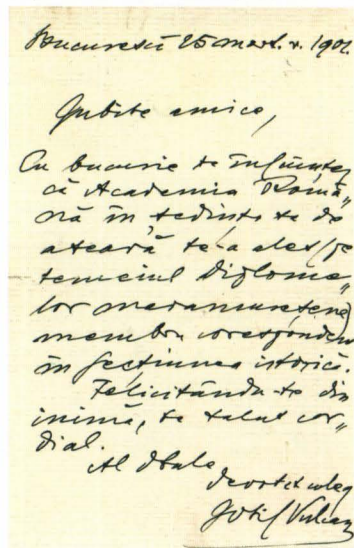 Bucuresci 25 mart. v. 1901.
Iubite amice,
Cu bucurie te înființez
că Academia Româ„
nă în ședința sa de
aseară te-a ales (pe
temeiul Diplome„
lor maramureșene)
membru corespondent
în secțiunea istorică.
Felicitându-te din
inimă, te salut cor„
dial.
Al dtale
devotat coleg
Iosif Vulcan